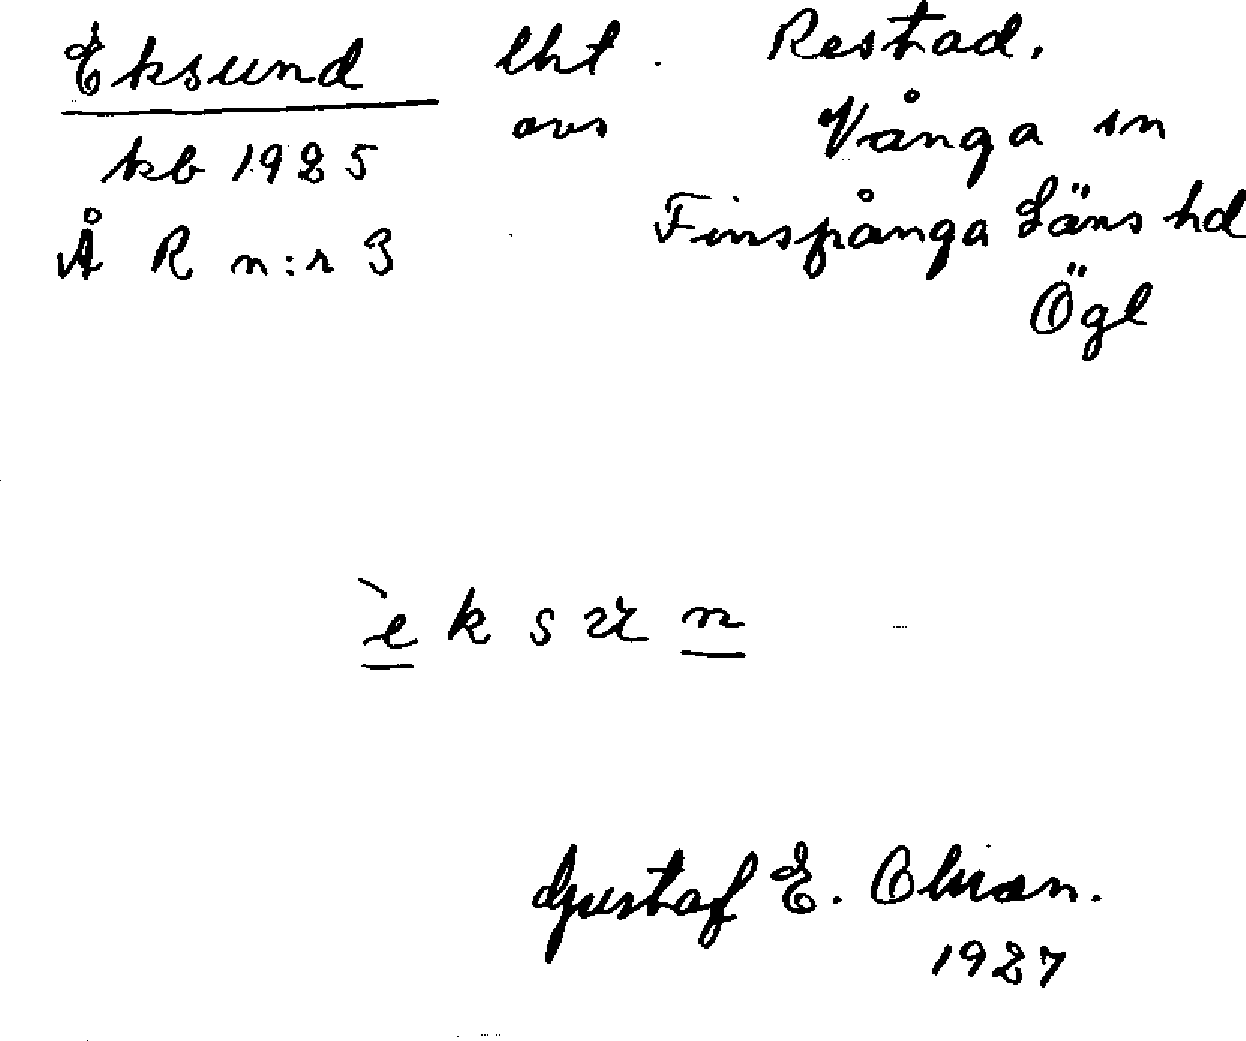 Eksund lht. Restad.
avs Vånga sn
kb 1925
Finspånga Läns hd
Å R n:r 3
Ögl
`e k s u n
Gustaf E.
1927